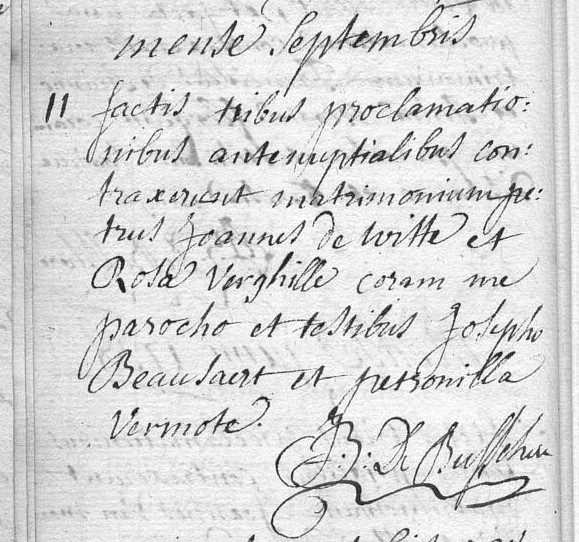 mense Septembris
11 factis tribus proclamatio:
nibus antenuptialibus con:
traxerunt matrimonium pe:
trus Joannes de Witte et
Rosa Verghille coram me
parocho et testibus Josepho
Beausaert et petronilla
Vermote.
B: De Busschere